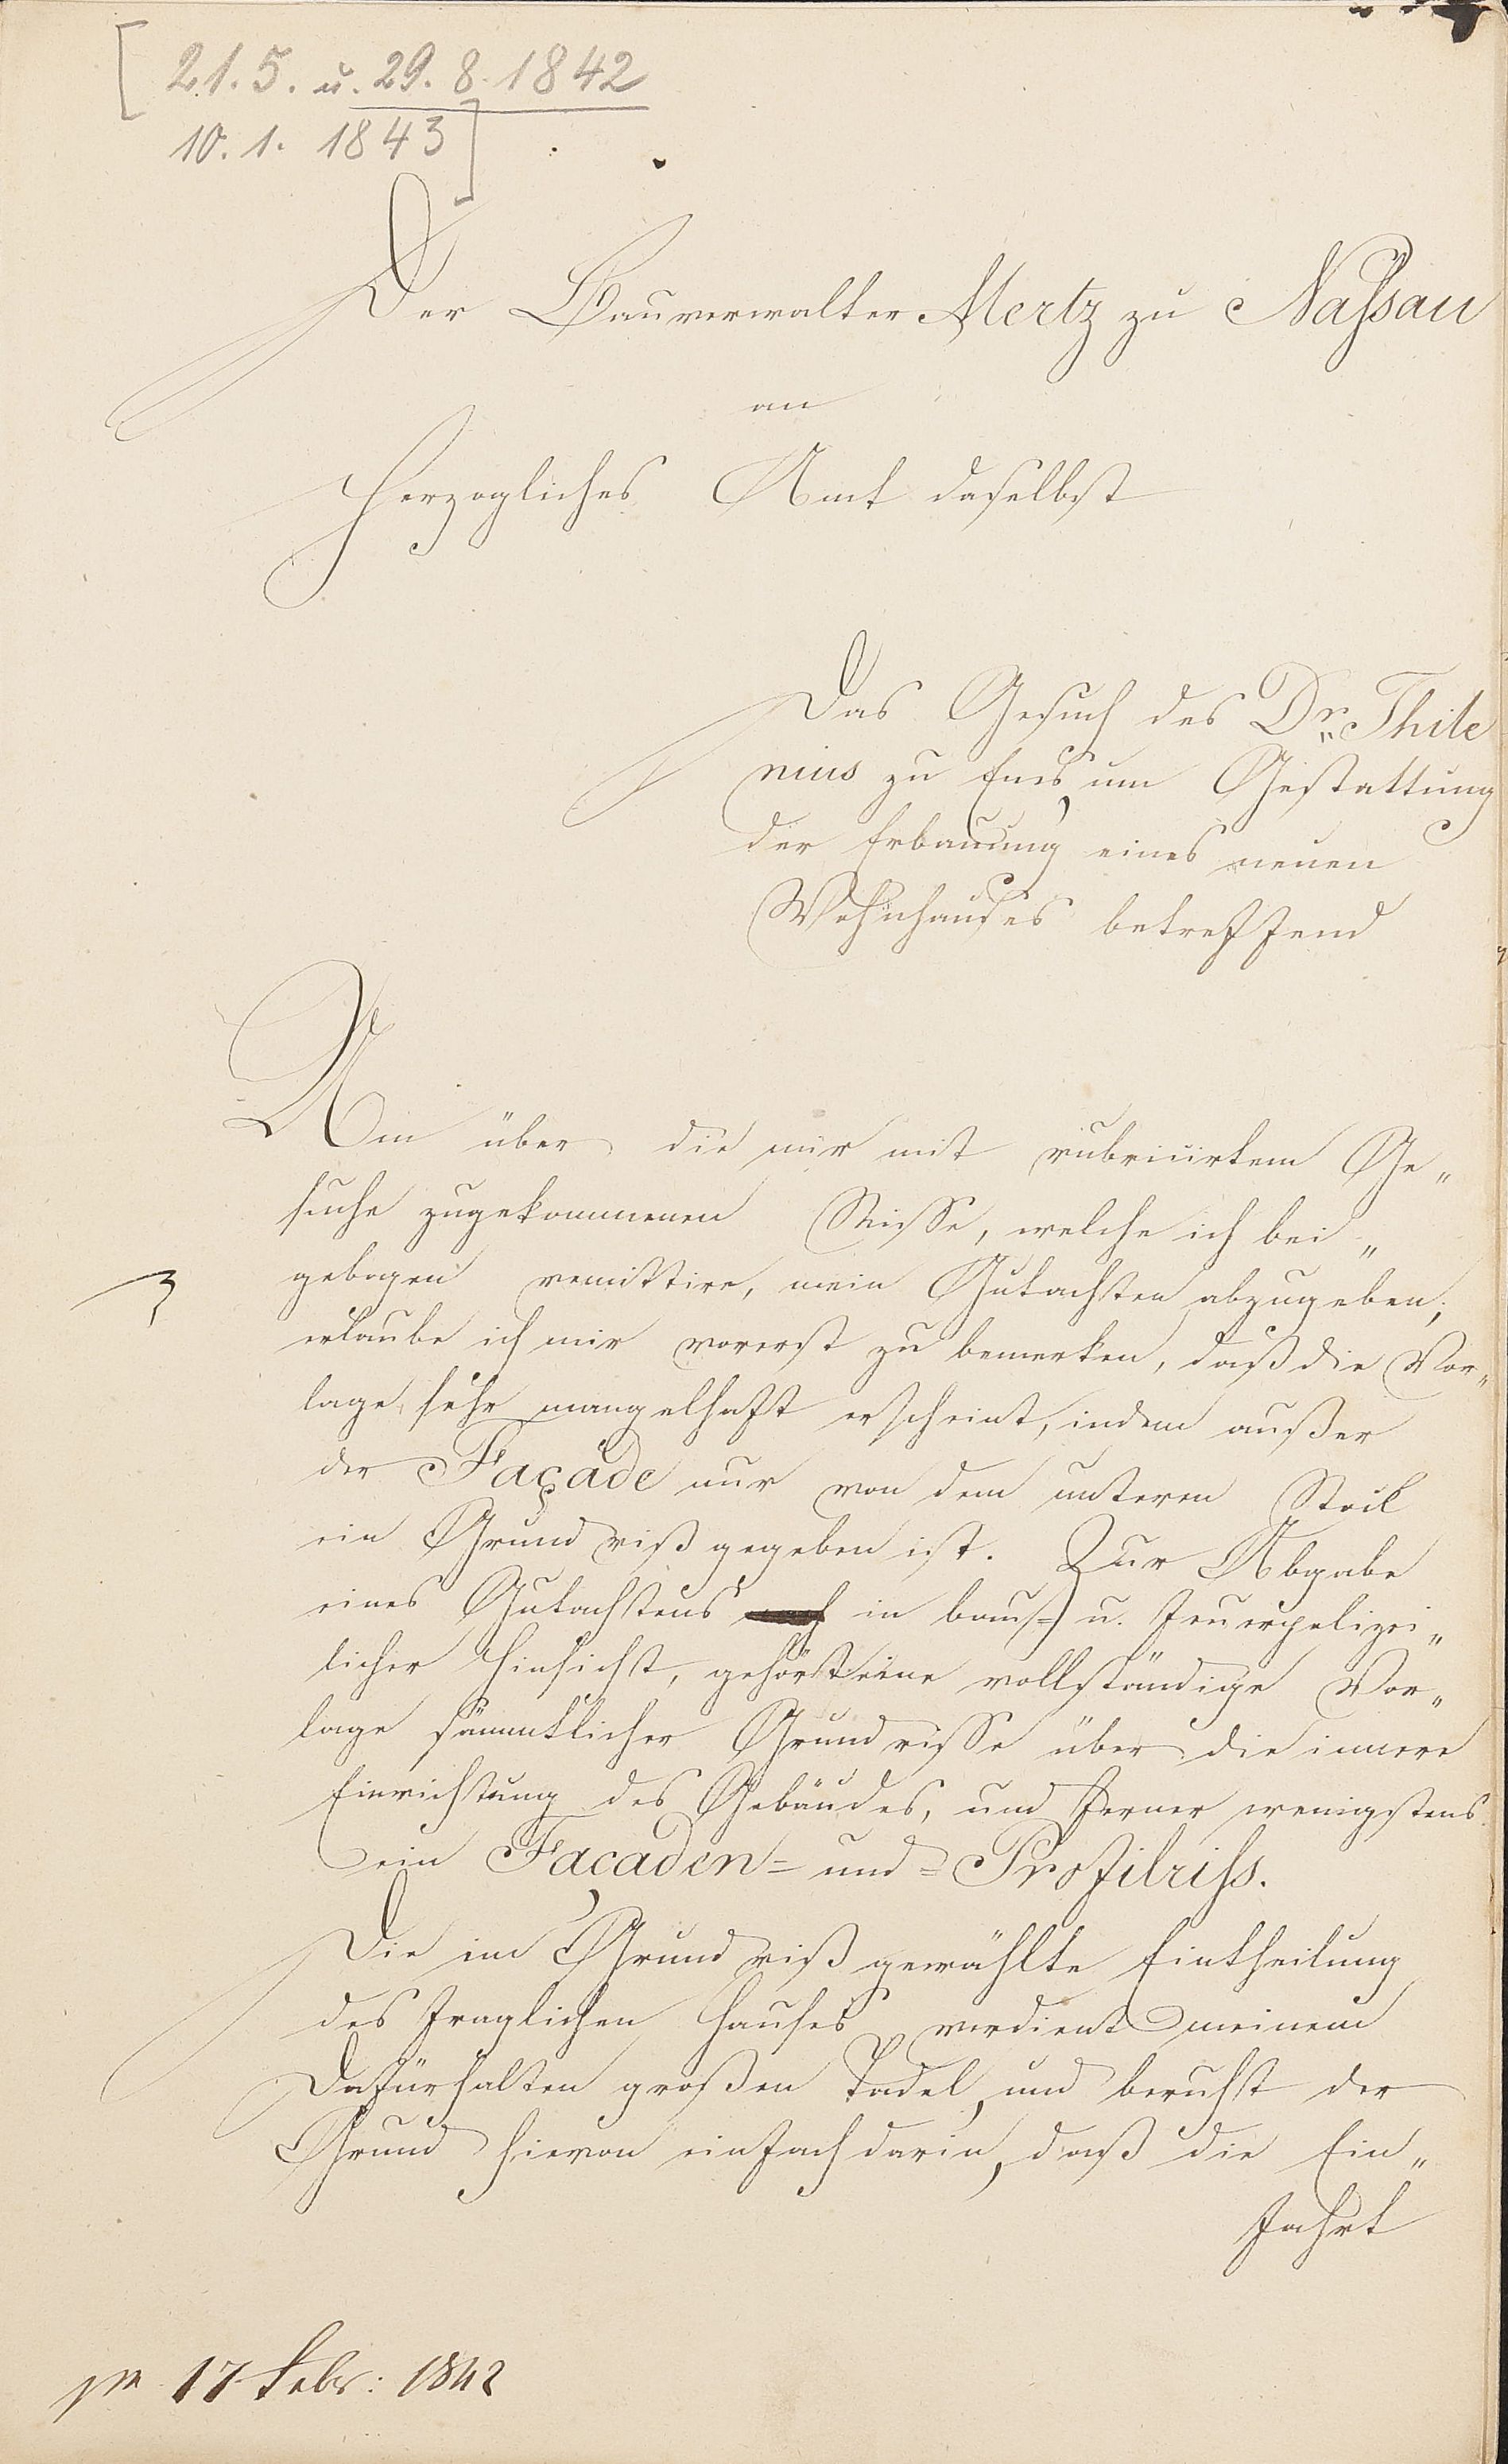 [21.5. u. 29.8.1842
10.1. 1843]
Der Bauverwalter Mertz zu Nassau
an
Herzogliches Amt daselbst
Das Gesuch des Dr. Thile
nius zu Ems, um Gestattung
der Erbauung eines neuen
Wohnhauses betreffend
Um über die mir mit rubricirtem Ge„
suche zugekommenen Risse, welche ich bei„
gebogen remittire, mein Gutachten abzugeben,
erlaube ich mir vorerst zu bemerken, daß die Vor„
lage sehr mangelhaft erscheint, indem außer
der Façade nur von dem unteren Stock
ein Grundriß gegeben ist. Zur Abgabe
eines Gutachtens in bau= u. feuerpolizei„
licher Hinsicht, gehört eine vollständige Vor„
lage sämmtlicher Grundrisse über die innere
Einrichtung des Gebäudes, und ferner wenigstens
ein Facaden= und =Profilriss.
Die im Grundriß gewählte Eintheilung
des fraglichen Hauses verdient meinem
Dafürhalten großen Tadel, und beruht der
Grund hiervon einfach darin, daß die Ein„
fahrt
pr 17 Febr: 1842